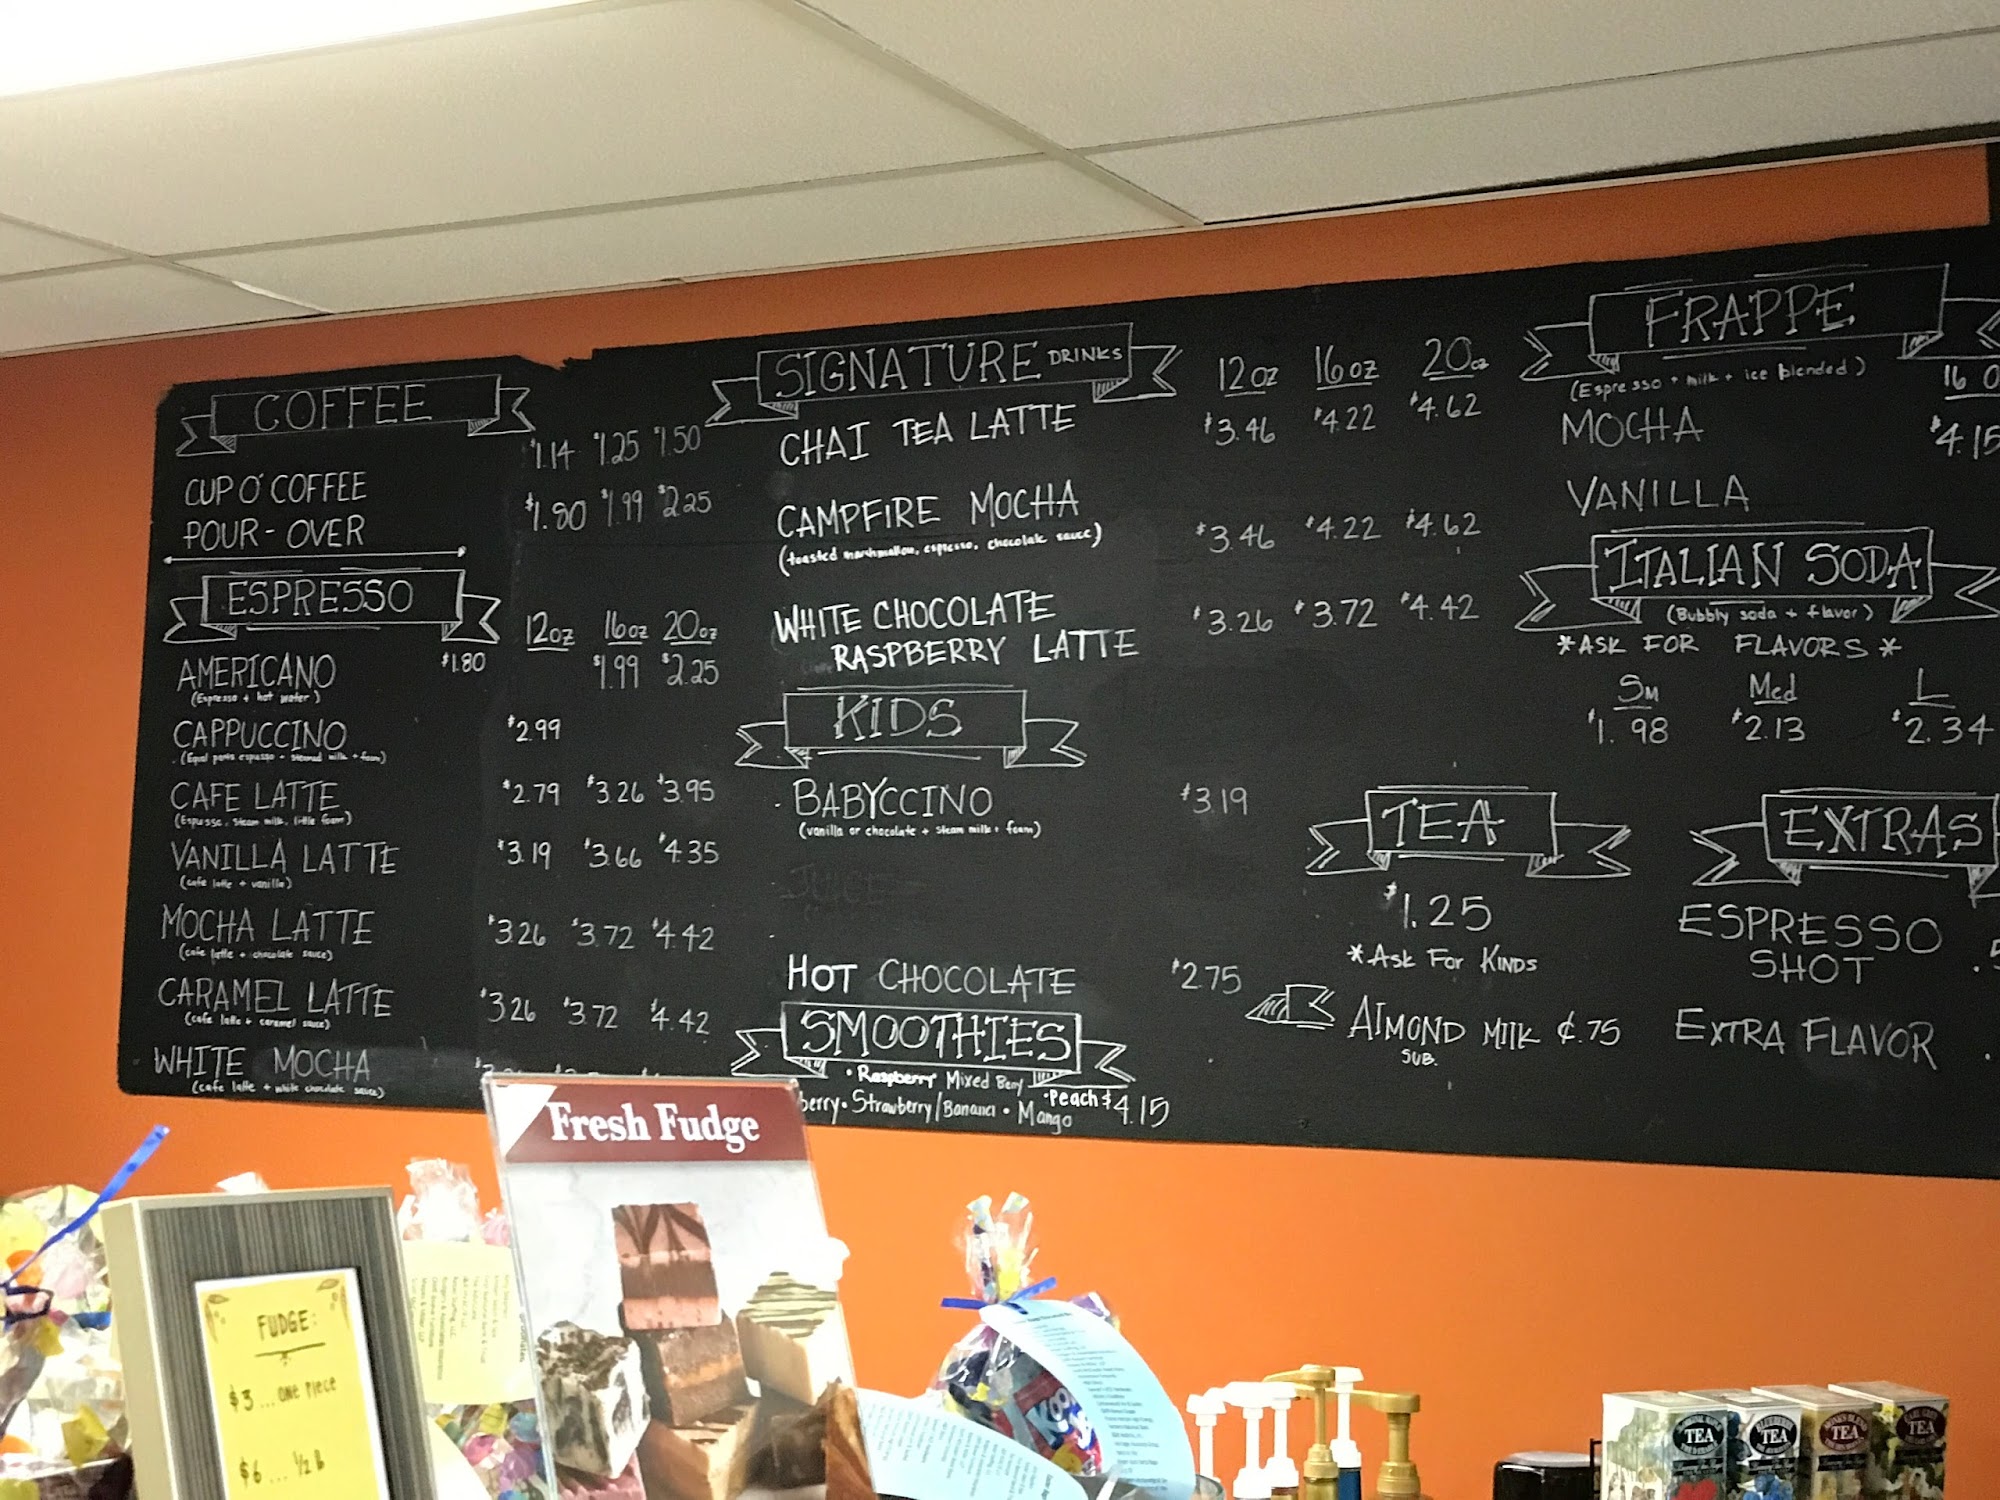 COFFEE
$1.14 $1.25 $1.50
CUP O' COFFEE
$1.80 $1.99 $2.25
POUR-OVER
ESPRESSO
12oz 16oz 20oz
AMERICANO $1.80 $1.99 $2.25
(Espresso + hot water)
CAPPUCCINO $2.99
(Equal parts espresso + steamed milk + foam)
CAFE LATTE $2.79 $3.26 $3.95
(Espresso, steam milk, little foam)
VANILLA LATTE $3.19 $3.66 $4.35
(cafe latte + vanilla)
MOCHA LATTE $3.26 $3.72 $4.42
(cafe latte + chocolate sauce)
CARAMEL LATTE $3.26 $3.72 $4.42
(cafe latte + caramel sauce)
WHITE MOCHA
(cafe latte + white chocolate sauce)
SIGNATURE DRINKS
12oz 16oz 20oz
CHAI TEA LATTE $3.46 $4.22 $4.62
CAMPFIRE MOCHA $3.46 $4.22 $4.62
(toasted marshmallow, espresso, chocolate sauce)
WHITE CHOCOLATE $3.26 $3.72 $4.42
RASPBERRY LATTE
KIDS
BABYCCINO $3.19
(vanilla or chocolate + steam milk + foam)
JUICE
HOT CHOCOLATE $2.75
SMOOTHIES
• Raspberry Mixed Berry •Peach $4.15
berry • Strawberry/Banana • Mango
FRAPPE
(Espresso + milk + ice blended)
16 O
MOCHA $4.15
VANILLA
ITALIAN SODA
(Bubbly soda + flavor)
*ASK FOR FLAVORS*
Sm Med L
$1.98 $2.13 $2.34
TEA
$1.25
*Ask For Kinds
Almond Milk ¢.75
SUB.
EXTRAS
ESPRESSO
SHOT
EXTRA FLAVOR
Fresh Fudge
FUDGE:
$3 ... one piece
$6 ... 1/2 lb
TEA
TEA
TEA
EARL GREY
TEA